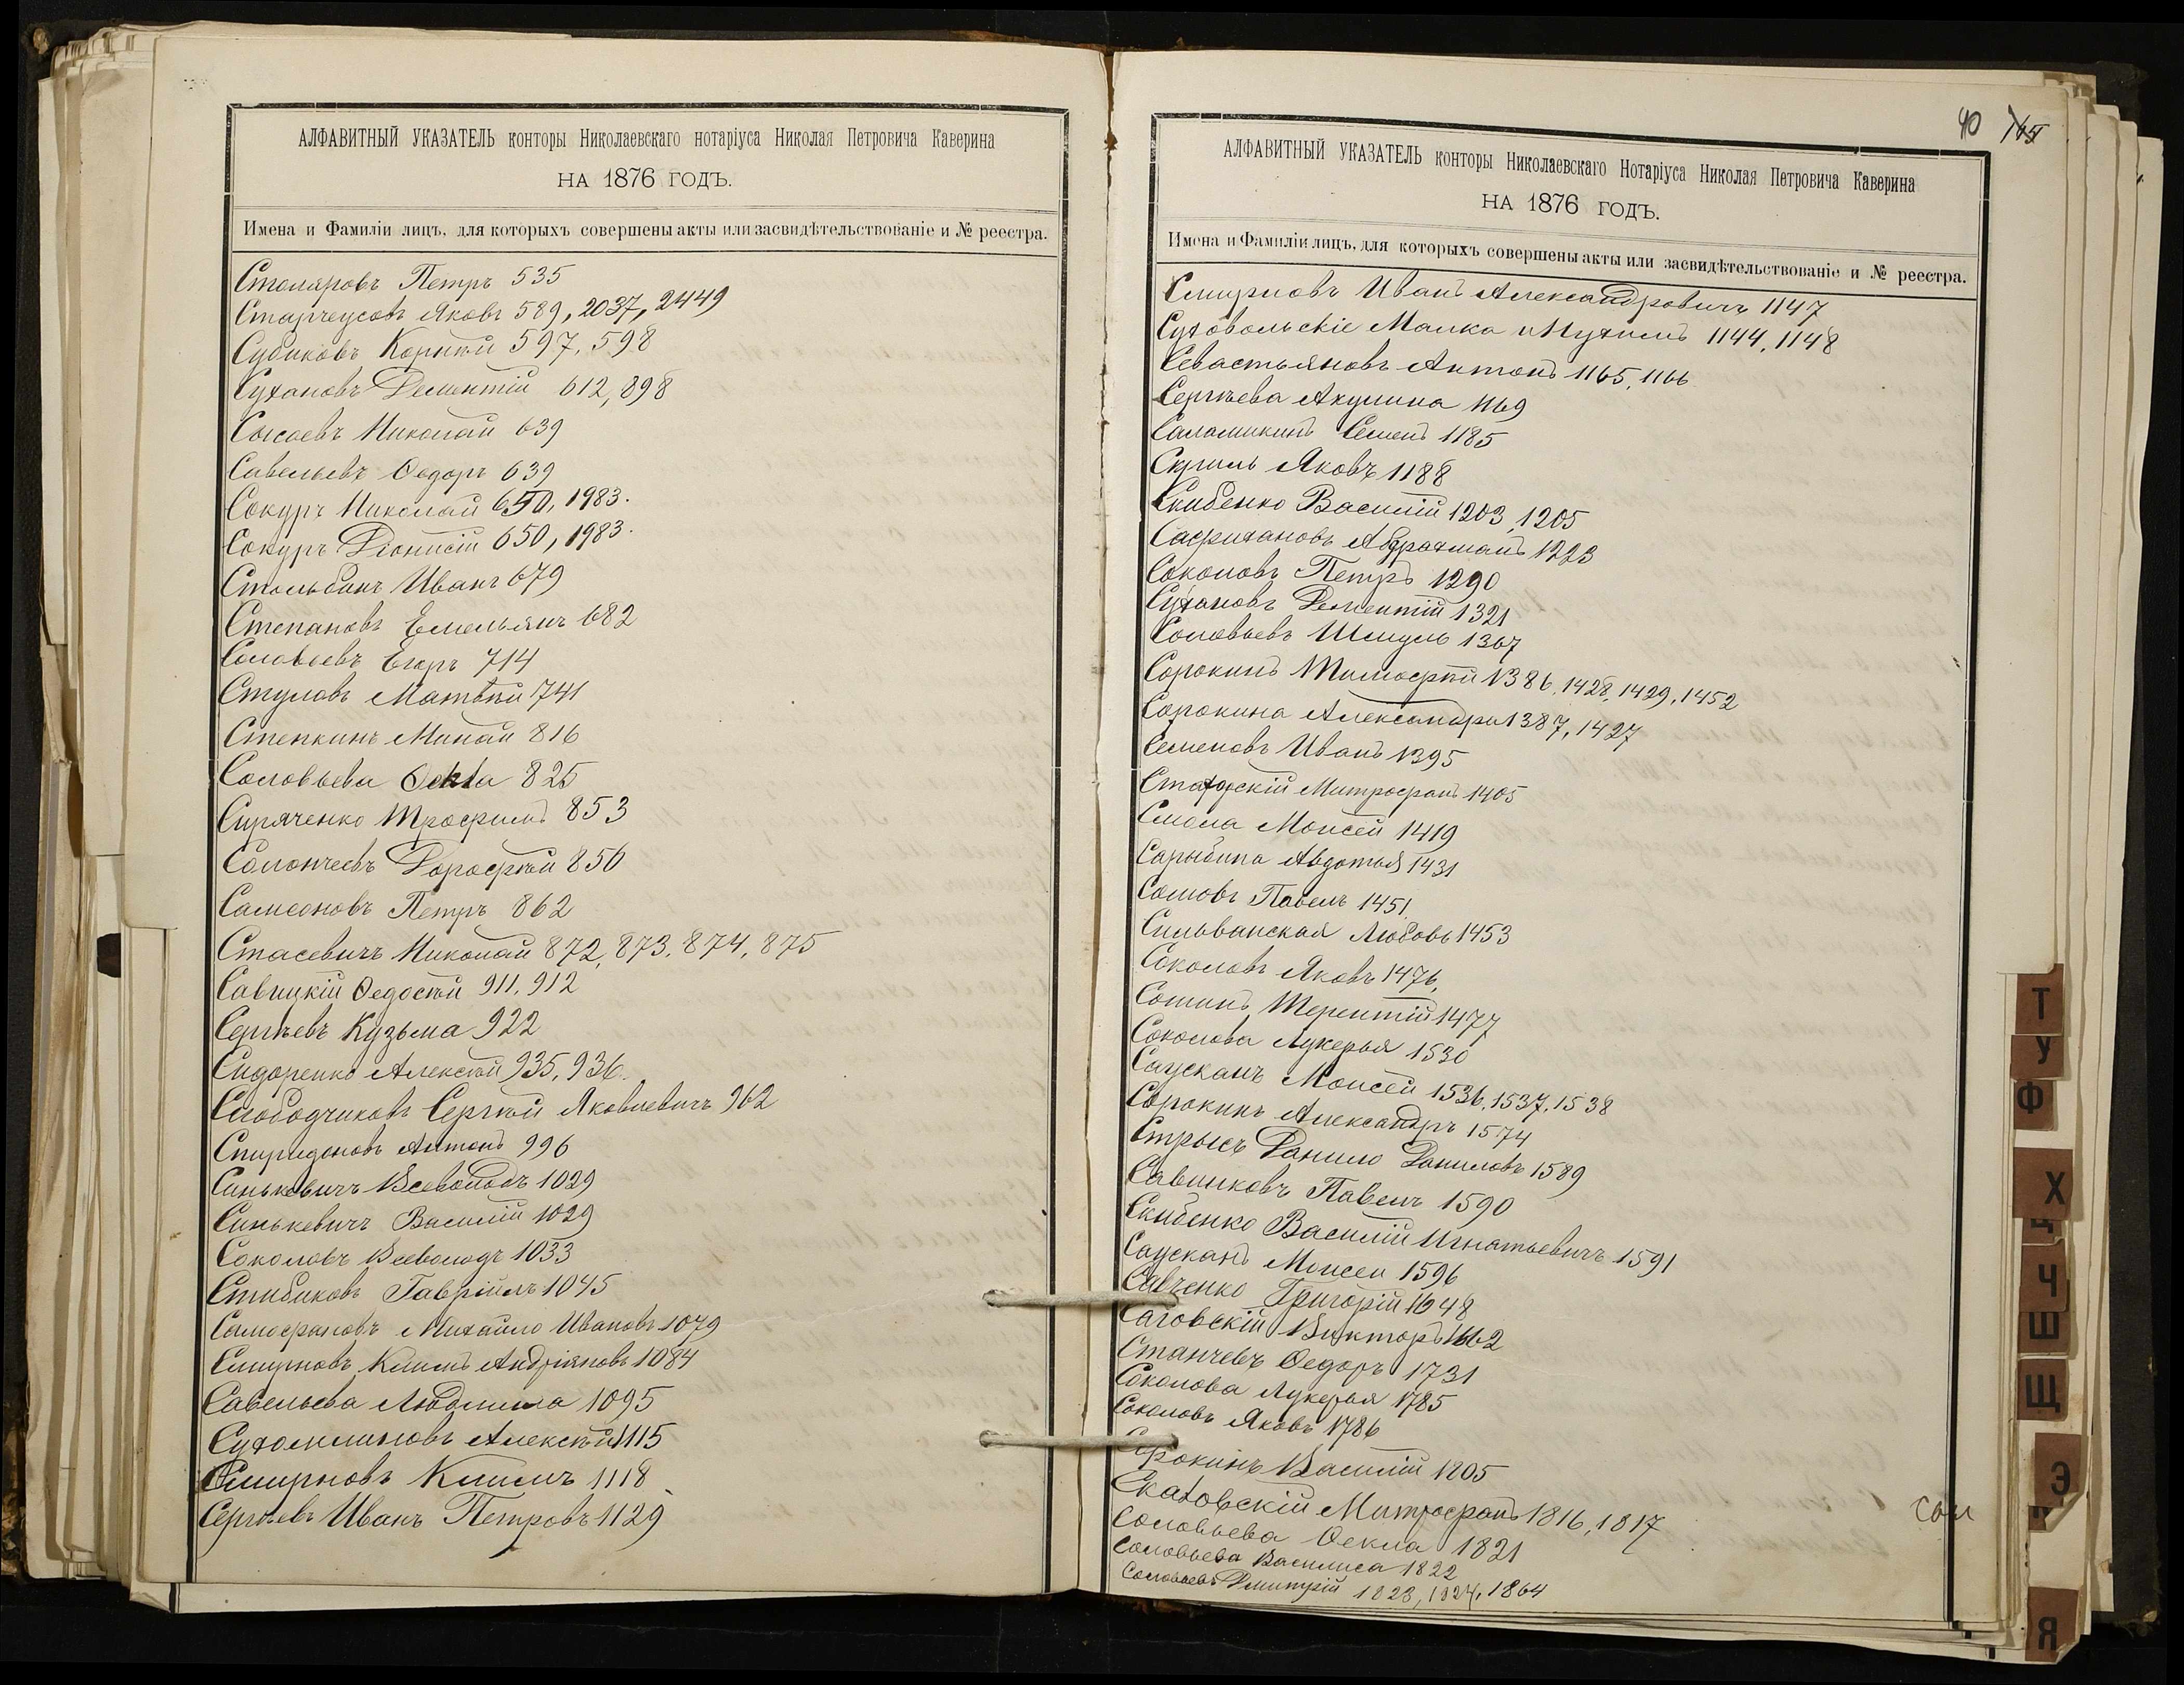 АЛФАВИТНЫЙ УКАЗАТЕЛЬ конторы Николаевскаго нотаріуса Николая Петровича Каверина
НА 1876 ГОДЪ.
Имена и Фамиліи лицъ, для которыхъ совершены акты или засвидѣтельствованіе и № реестра.
Столяровъ Петръ 535
Старчеусовъ Яковъ 589, 2037, 2449
Субиковъ Корнѣй 597, 598
Сухановъ Дементій 612, 898
Сысоевъ Николай 639
Савельевъ Ѳедоръ 639
Сокуръ Николай 650, 1983.
Сокуръ Діонисій 650, 1983.
Стольбанъ Иванъ 679
Степановъ Емельянъ 682
Соловьевъ Егоръ 714
Стуловъ Матвѣй 741
Степкинъ Минай 816
Соловьева Ѳекла 825
Сиряченко Трофимъ 853
Солончеевъ Дорофѣй 856
Самсоновъ Петръ 862
Стасевичъ Николай 872, 873, 874, 875
Савицкій Ѳедосѣй 911, 912
Сергѣевъ Кузьма 922
Сидоренко Алексѣй 935, 936.
Слободчиковъ Сергѣй Яковлевичъ 962
Спиридоновъ Антонъ 996
Синькевичъ Всеволодъ 1029
Синькевичъ Василій 1029
Соколовъ Всеволодъ 1033
Стибиковъ Гавріилъ 1045
Самофаловъ Михайло Ивановъ 1079
Смирновъ Климъ Андріяновъ 1084
Савельева Людмила 1095
Сухомлиновъ Алексѣй 1115
Смирновъ Климъ 1118
Сергѣевъ Иванъ Петровъ 1129
40
АЛФАВИТНЫЙ УКАЗАТЕЛЬ конторы Николаевскаго Нотаріуса Николая Петровича Каверина
НА 1876 ГОДЪ.
Имена и Фамиліи лицъ, для которыхъ совершены акты или засвидѣтельствованіе и № реестра.
Смирновъ Иванъ Александровичъ 1147
Суховольскіе Малка и Нухимъ 1144, 1148
Севастьяновъ Антонъ 1165, 1166
Сергѣева Акулина 1169
Саламикинъ Семенъ 1185
Скриль Яковъ 1188
Скибенко Василій 1203, 1205
Сафихановъ Абдрахманъ 1223
Соколовъ Петръ 1290
Сухановъ Дементій 1321
Соловьевъ Шмуль 1367
Сорокинъ Тимофѣй 1386, 1428, 1429, 1452
Сорокина Александра 1387, 1427
Семеновъ Иванъ 1395
Митрофанъ 1405
Смола Моисей 1419
Сарыбина Авдотья 1431
Сомовъ Павелъ 1451
Сильванская Любовь 1453
Соколовъ Яковъ 1476,
Сошинъ Терентій 1477
Соколова Лукерья 1530
Саусканъ Моисей 1536, 1537, 1538
Сорокинъ Александръ 1574
Стрысъ Данило Даниловъ 1589
Савинковъ Павелъ 1590
Скибенко Василій Игнатьевичъ 1591
Саусканъ Моисей 1596
Савченко Григорій 1648
Саговскій Викторъ 1662
Станчевъ Ѳедоръ 1731
Соколова Лукерья 1785
Соколовъ Яковъ 1786
Сорокинъ Василій 1805
Скаховскій Митрофанъ 1816, 1817
Соловьева Ѳекла 1821
Соловьева Василиса 1822
Соловьевъ Дмитрій 1823, 1824, 1864
Т
У
Ф
Х
Ц
Ч
Ш
Щ
Э
Я